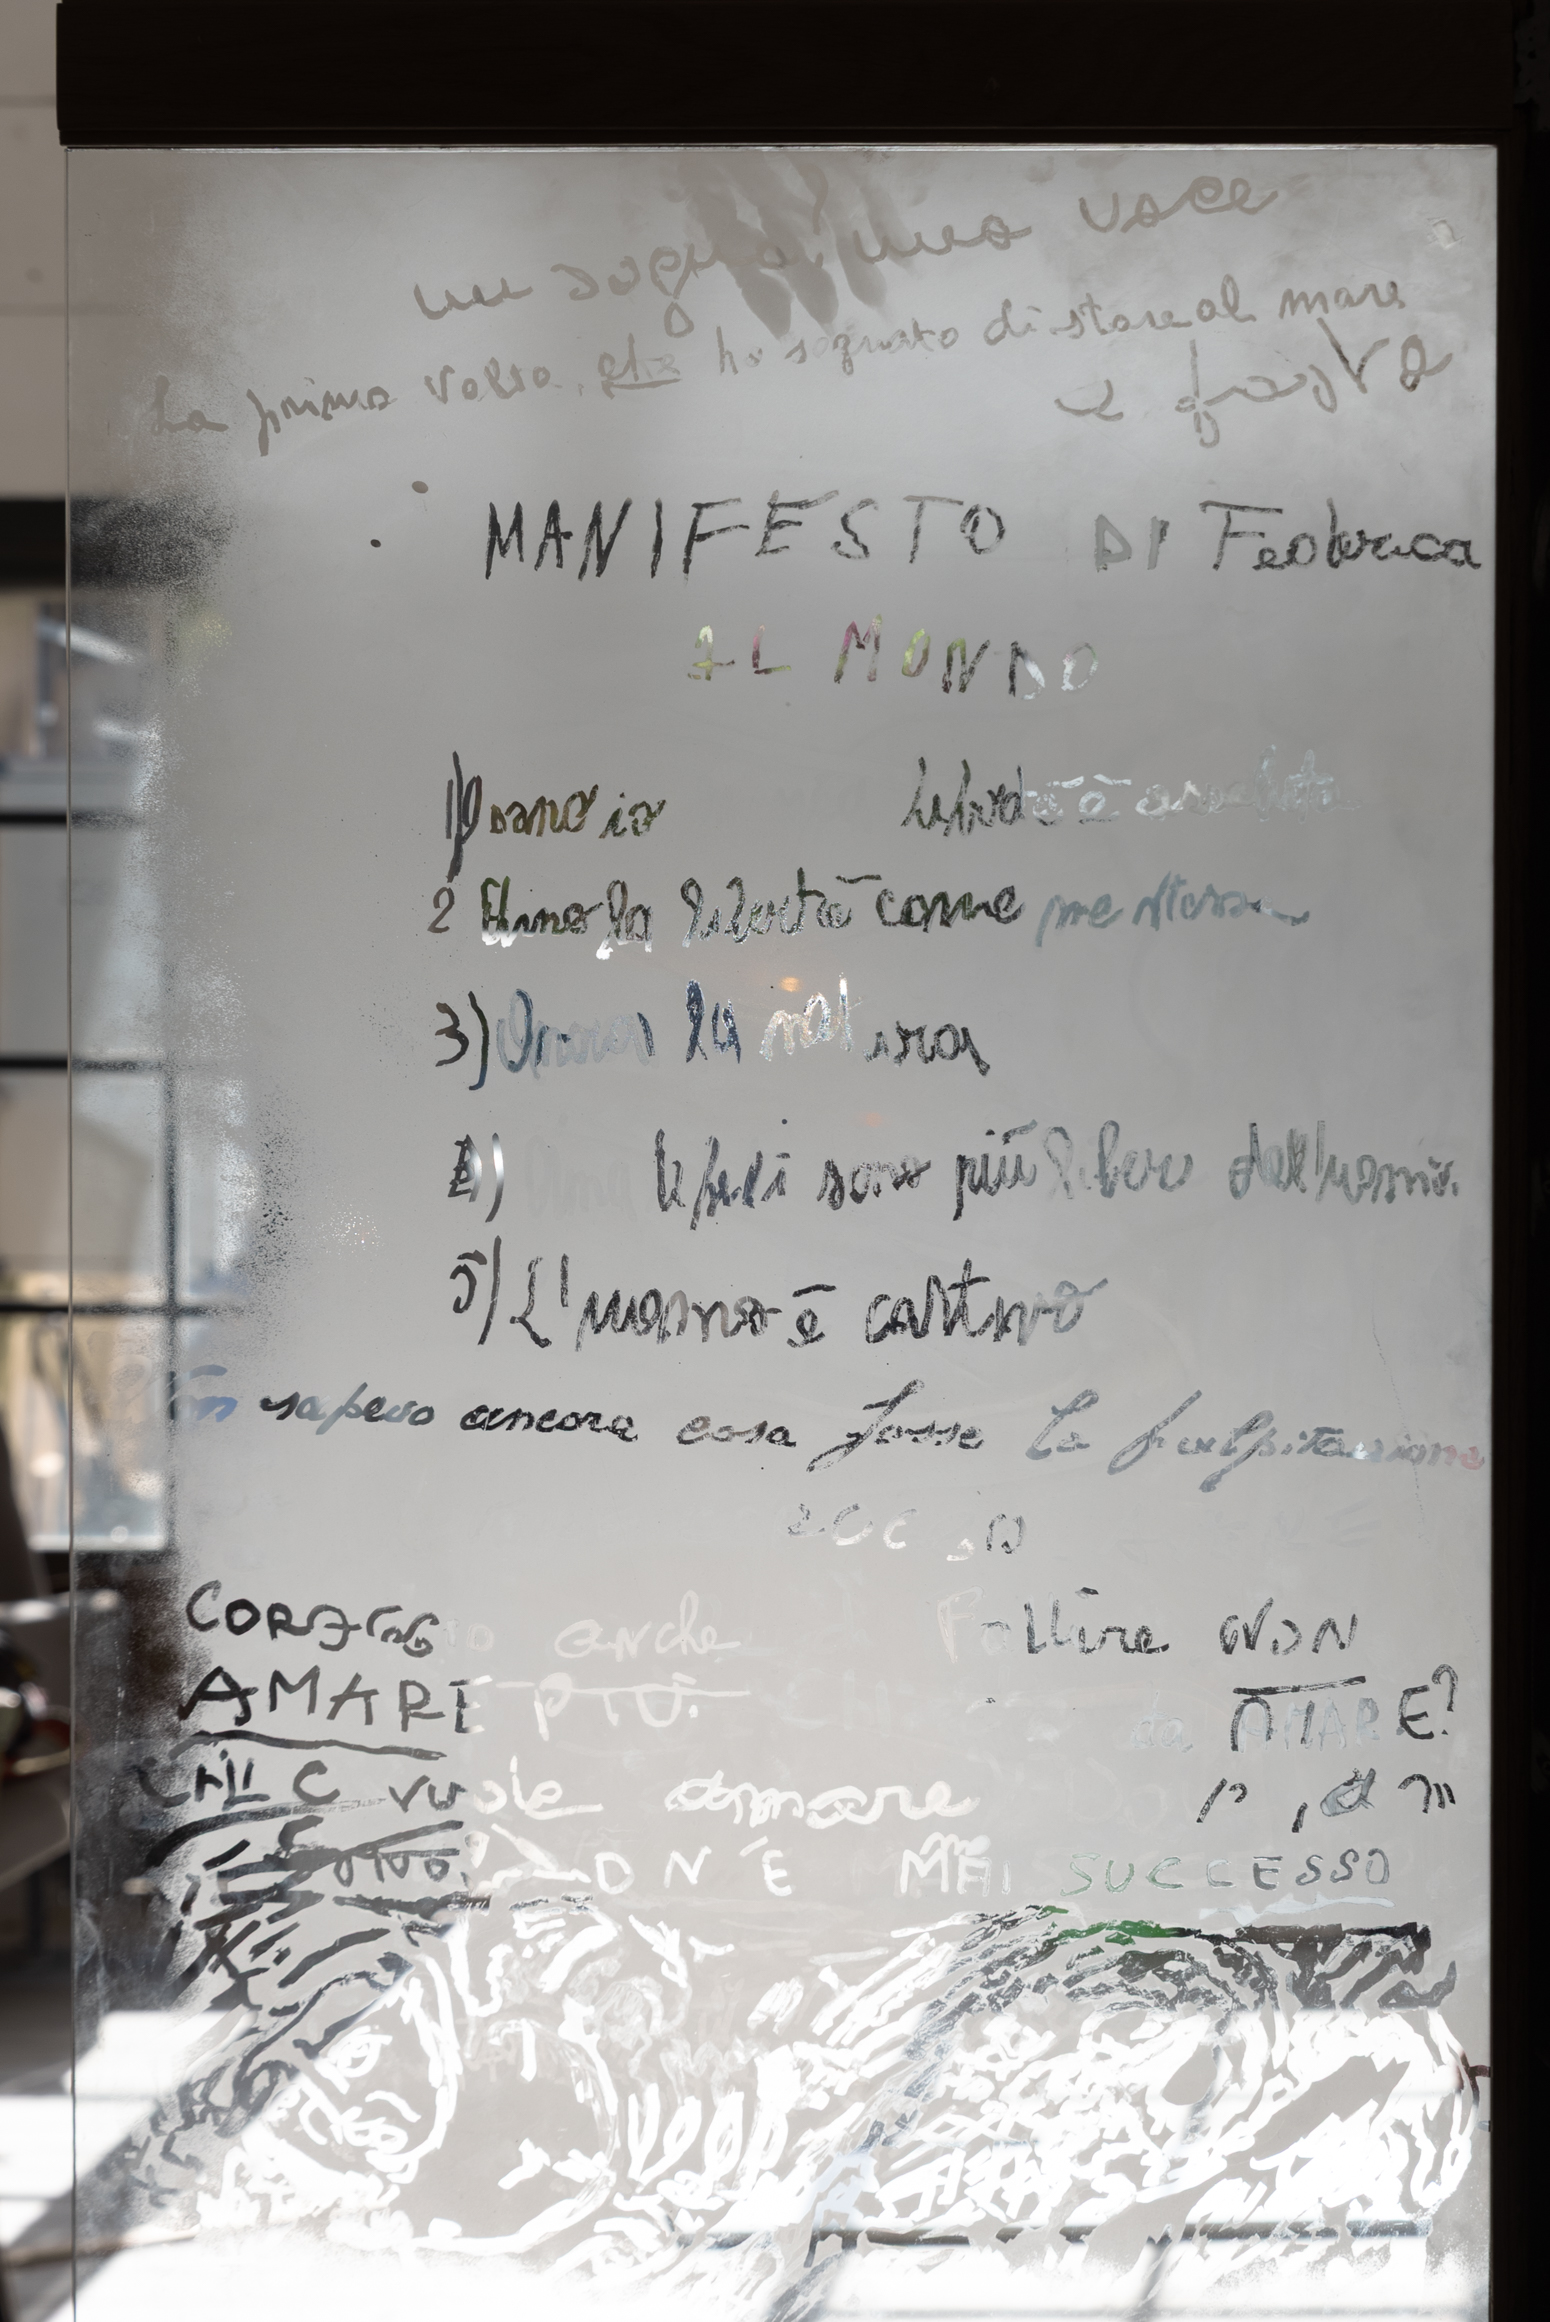 un sogno una voce
La prima volta che ho sognato di stare al mare
e
MANIFESTO DI Federica
AL MONDO
1) io libertà è assoluta
2 Amo la libertà come me stessa
3) Amo la natura
4) sono più liberi dell'uomo.
5) L'uomo è cattivo
Non sapevo ancora cosa fosse la
CORAGGIO anche Fallire NON
AMARE PIÙ. da AMARE?
CHI C vuole amare
NON È MAI SUCCESSO